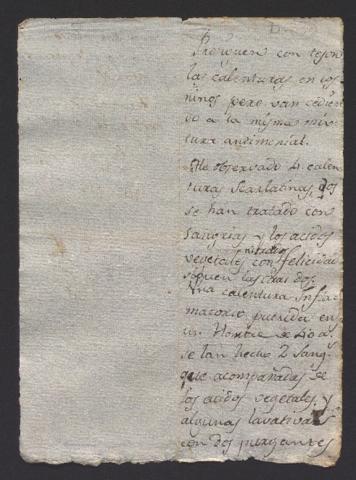 Prosiguen con teson
las calenturas en los
niños pero van cedien
do a la misma mix
tura antimonial.
He observado 4 calen
turas Scarlatinas, dos
se han tratado con
Sangrias y los acidos
vegetales nitrados con felicidad
siguen las otras dos.
Una calentura Infla
matoria putrida en
un Hombre de 40 a.s
se han hecho 2 Sang.
que acompañadas de
los acidos vegetales y
algunas lavativas
con dos purgantes